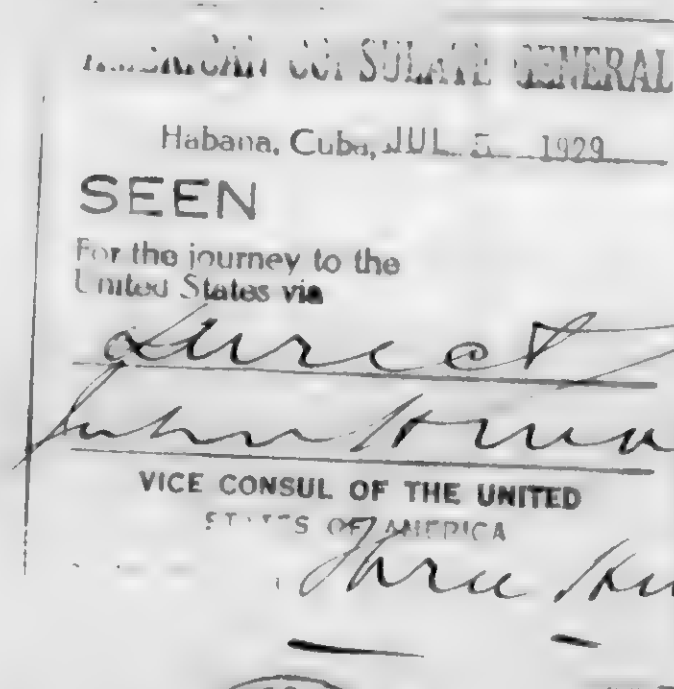 AMERICAN CONSULATE GENERAL
Habana, Cuba, JUL 5 1929
SEEN
For the journey to the
United States via
direct
John
VICE CONSUL OF THE UNITED
STATES OF AMERICA
Three